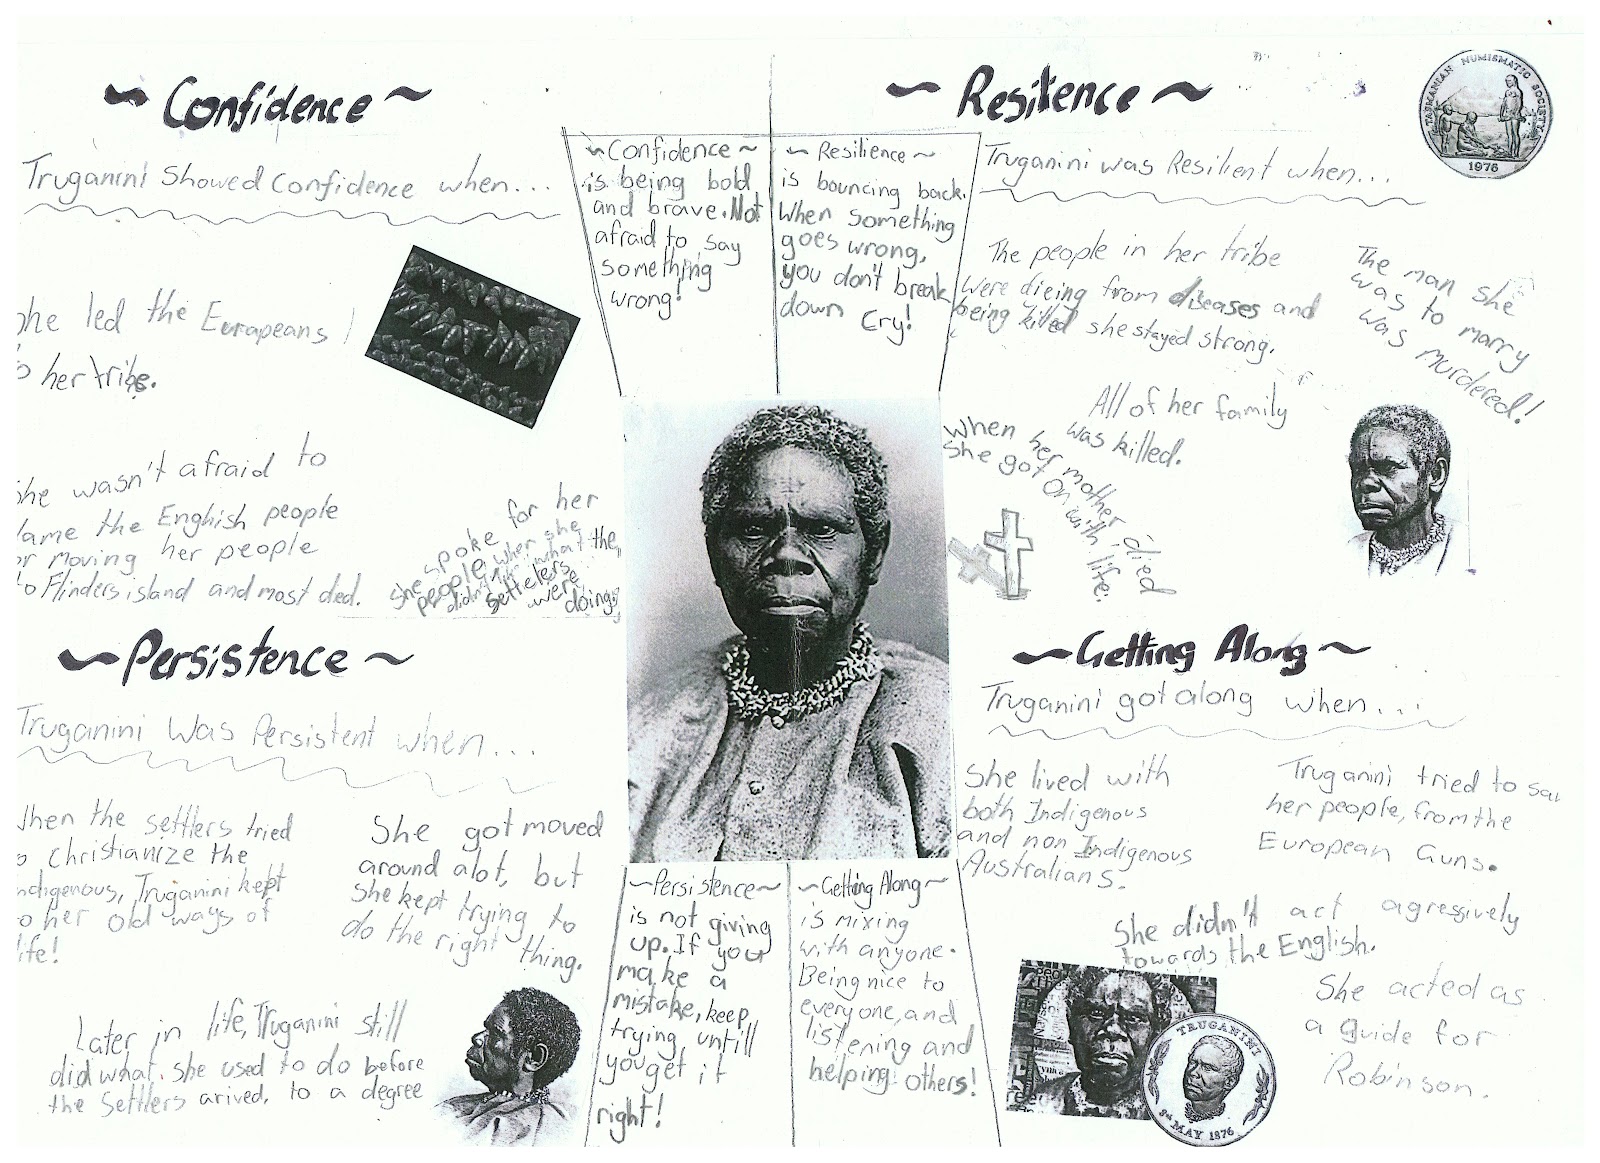 ~ Confidence ~
Truganini Showed Confidence when...
she led the Europeans
to her tribe.
She wasn't afraid to
lame the Enghish people
or moving her people
to Flinders island and most died.
She spoke for her
people when she
didn't like what the
settelers were
doing.
~ Confidence ~
is being bold
and brave. Not
afraid to say
something
wrong!
~ Resilience ~
is bouncing back.
When something
goes wrong,
you don't break
down cry!
~ Resilence ~
Truganini was Resilient when...
The people in her tribe
were dieing from diseases and
being killed she stayed strong.
The man she
was to marry
was murdered!
All of her family
was killed.
When her mother died
she got on with life.
TASMANIAN NUMISMATIC SOCIETY
1976
~ Persistence ~
Truganini Was Persistent when...
When the settlers tried
to Christianize the
ndigenous, Truganini kept
to her old ways of
life!
She got moved
around alot, but
she kept trying to
do the right thing.
Later in life, Truganini still
did what she used to do before
the settlers arived, to a degree
~ Persistence ~
is not giving
up. If you
make a
mistake, keep
trying, untill
you get it
right!
~ Getting Along ~
is mixing
with anyone.
Being nice to
everyone, and
listening and
helping others!
~ Getting Along ~
Truganini got along when...
She lived with
both Indigenous
and non Indigenous
Australians.
Truganini tried to sa
her people, from the
European Guns.
She didn't act agressively
towards the English.
She acted as
a guide for
Robinson.
TRUGANINI
8th MAY 1876